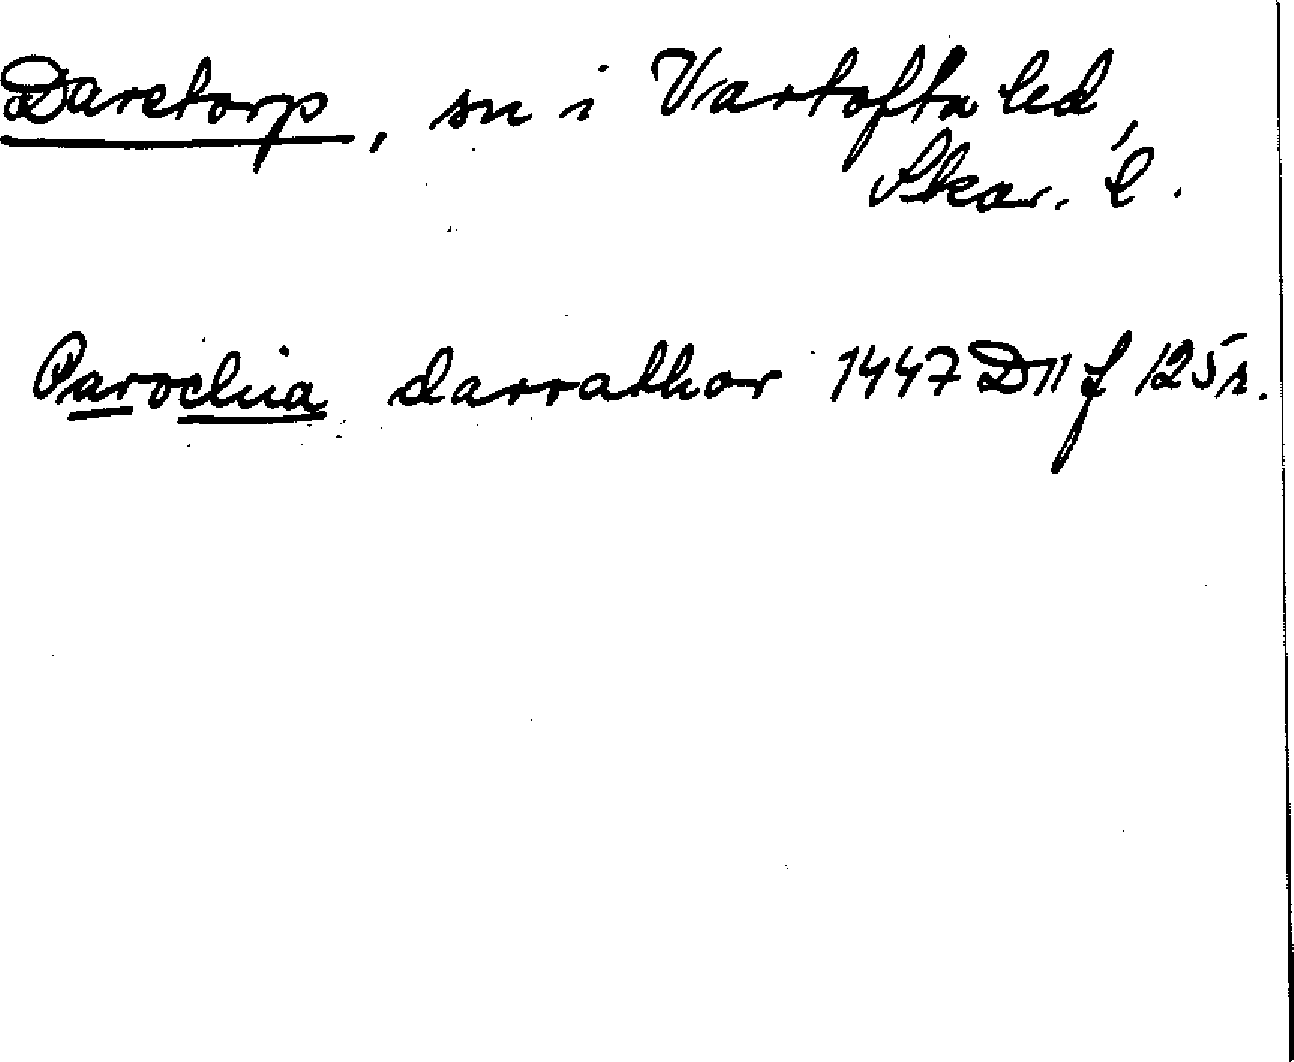 Daretorp, sn i Vartofta hd,
Skar. l.
Parochia darrathor 1447 D 11 f 125 r.